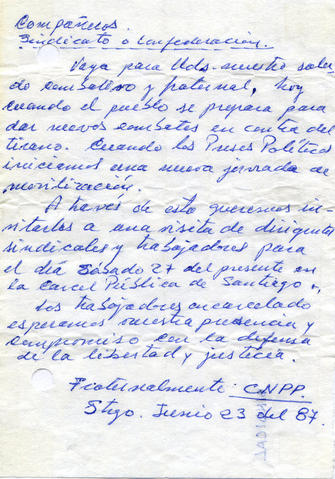 Compañeros.
Sindicato o Confederación.
Vaya para Uds. nuestro salu
do combativo y fraternal, hoy
cuando el pueblo se prepara para
dar nuevos combates en contra del
tirano. Cuando los Presos Políticos
iniciamos una nueva jornada de
movilización.
A través de esto queremos in-
vitarlos a una visita de dirigentes
sindicales y trabajadores para
el día Sábado 27 del presente en
la Carcel Pública de Santiago.
Los trabajadores encarcelado
esperamos vuestra presencia y
compromiso con la defensa
de la libertad y justicia.
Fraternalmente: CNPP.
Stgo. Junio 23 del 87.